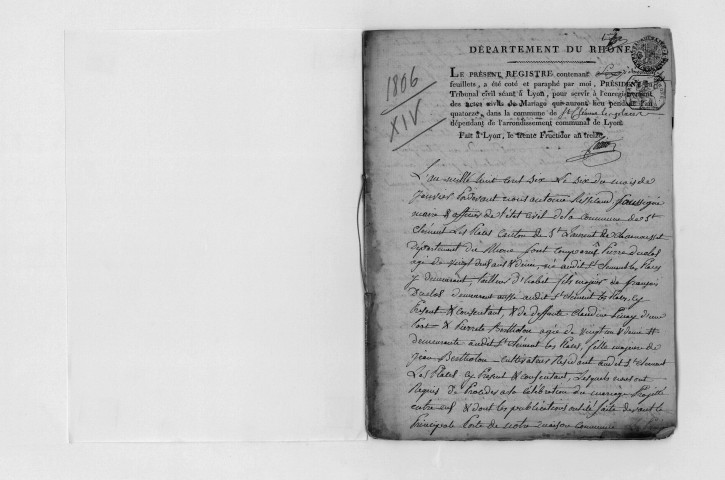 1806
XIV
DÉPARTEMENT DU RHÔNE
LE PRÉSENT REGISTRE contenant
feuillets, a été coté et paraphé par moi, PRÉSIDENT du
Tribunal civil séant à Lyon, pour servir à l'enregistrement
des actes civils de Mariage qui auront lieu pendant l'an
quatorze, dans la commune de St Clément les places
dépendant de l'arrondissement communal de Lyon.
Fait à Lyon, le trente Fructidor an treize.
L'an mille huit cent six le six du mois de
janvier pardevant nous antoine soussigné
maire & officier de l'état civil de la commune de St
Clément Les Places Canton de St Laurent de Chamousset
département du Rhone sont comparus Pierre Duclos
agé de vingt ans & demi, né audit St Clément les Places
y demeurant, tailleur d'habit fils majeur de françois
Duclos demeurant aussi audit St Clément les Places, cy
Présent & Consentant, & de deffunte Claudine d'une
Part & Pierrete Bertholon agée de vingt un & demi &
demeurante audit St Clément les Places, fille majeure de
Jean Bertholon cultivateur Résident audit St Clément
Les Places cy Présent & consentant, Lesquels nous ont
Requis de Procéder a la célébration du mariage Projetté
entre eux & dont les publications ont été faite devant la
Principale Porte de notre maison commune